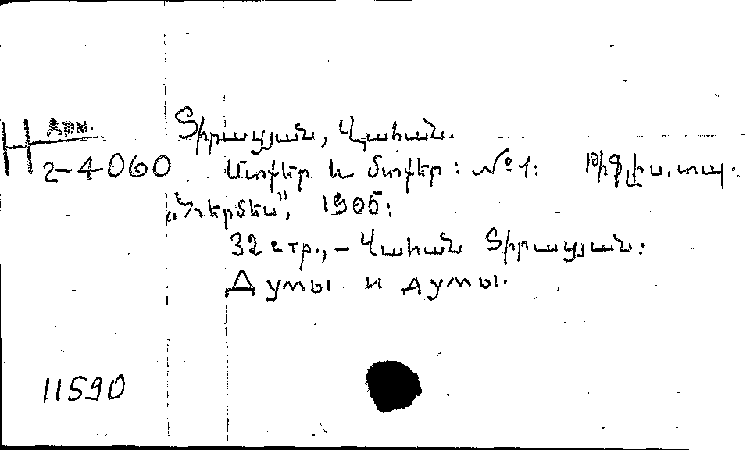 Арм.
H 2-4060
Տիրացյան, Վահան.
Մտքեր և մտքեր: №1: Թիֆլիս, տպ.
„Հերմես", 1905:
32 стр., – Վահան Տիրացյան:
Думы и думы.
11590